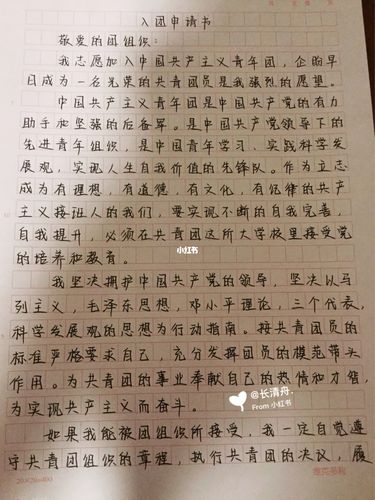 入团申请书
敬爱的团组织：
我志愿加入中国共产主义青年团，企盼早
日成为一名光荣的共青团员是我强烈的愿望。
中国共产主义青年团是中国共产党的有力
助手和坚强的后备军。是中国共产党领导下的
先进青年组织，是中国青年学习、实践科学发
展观，实现人生自我价值的先锋队。作为立志
成为有理想，有道德，有文化，有纪律的共产
主义接班人的我们，要实现不断的自我完善，
自我提升，必须在共青团这所大学校里接受党
的培养和教育。
小红书
我坚决拥护中国共产党的领导，坚决以马
列主义，毛泽东思想，邓小平理论，三个代表，
科学发展观的思想为行动指南。按共青团员的
标准严格要求自己，充分发挥团员的模范带头
作用。为共青团的事业奉献自己的热情和才智，
为实现共产主义而奋斗。
@长清舟.
From 小红书
如果我能被团组织所接受，我一定自觉遵
守共青团组织的章程，执行共青团的决议，履
20×20=400